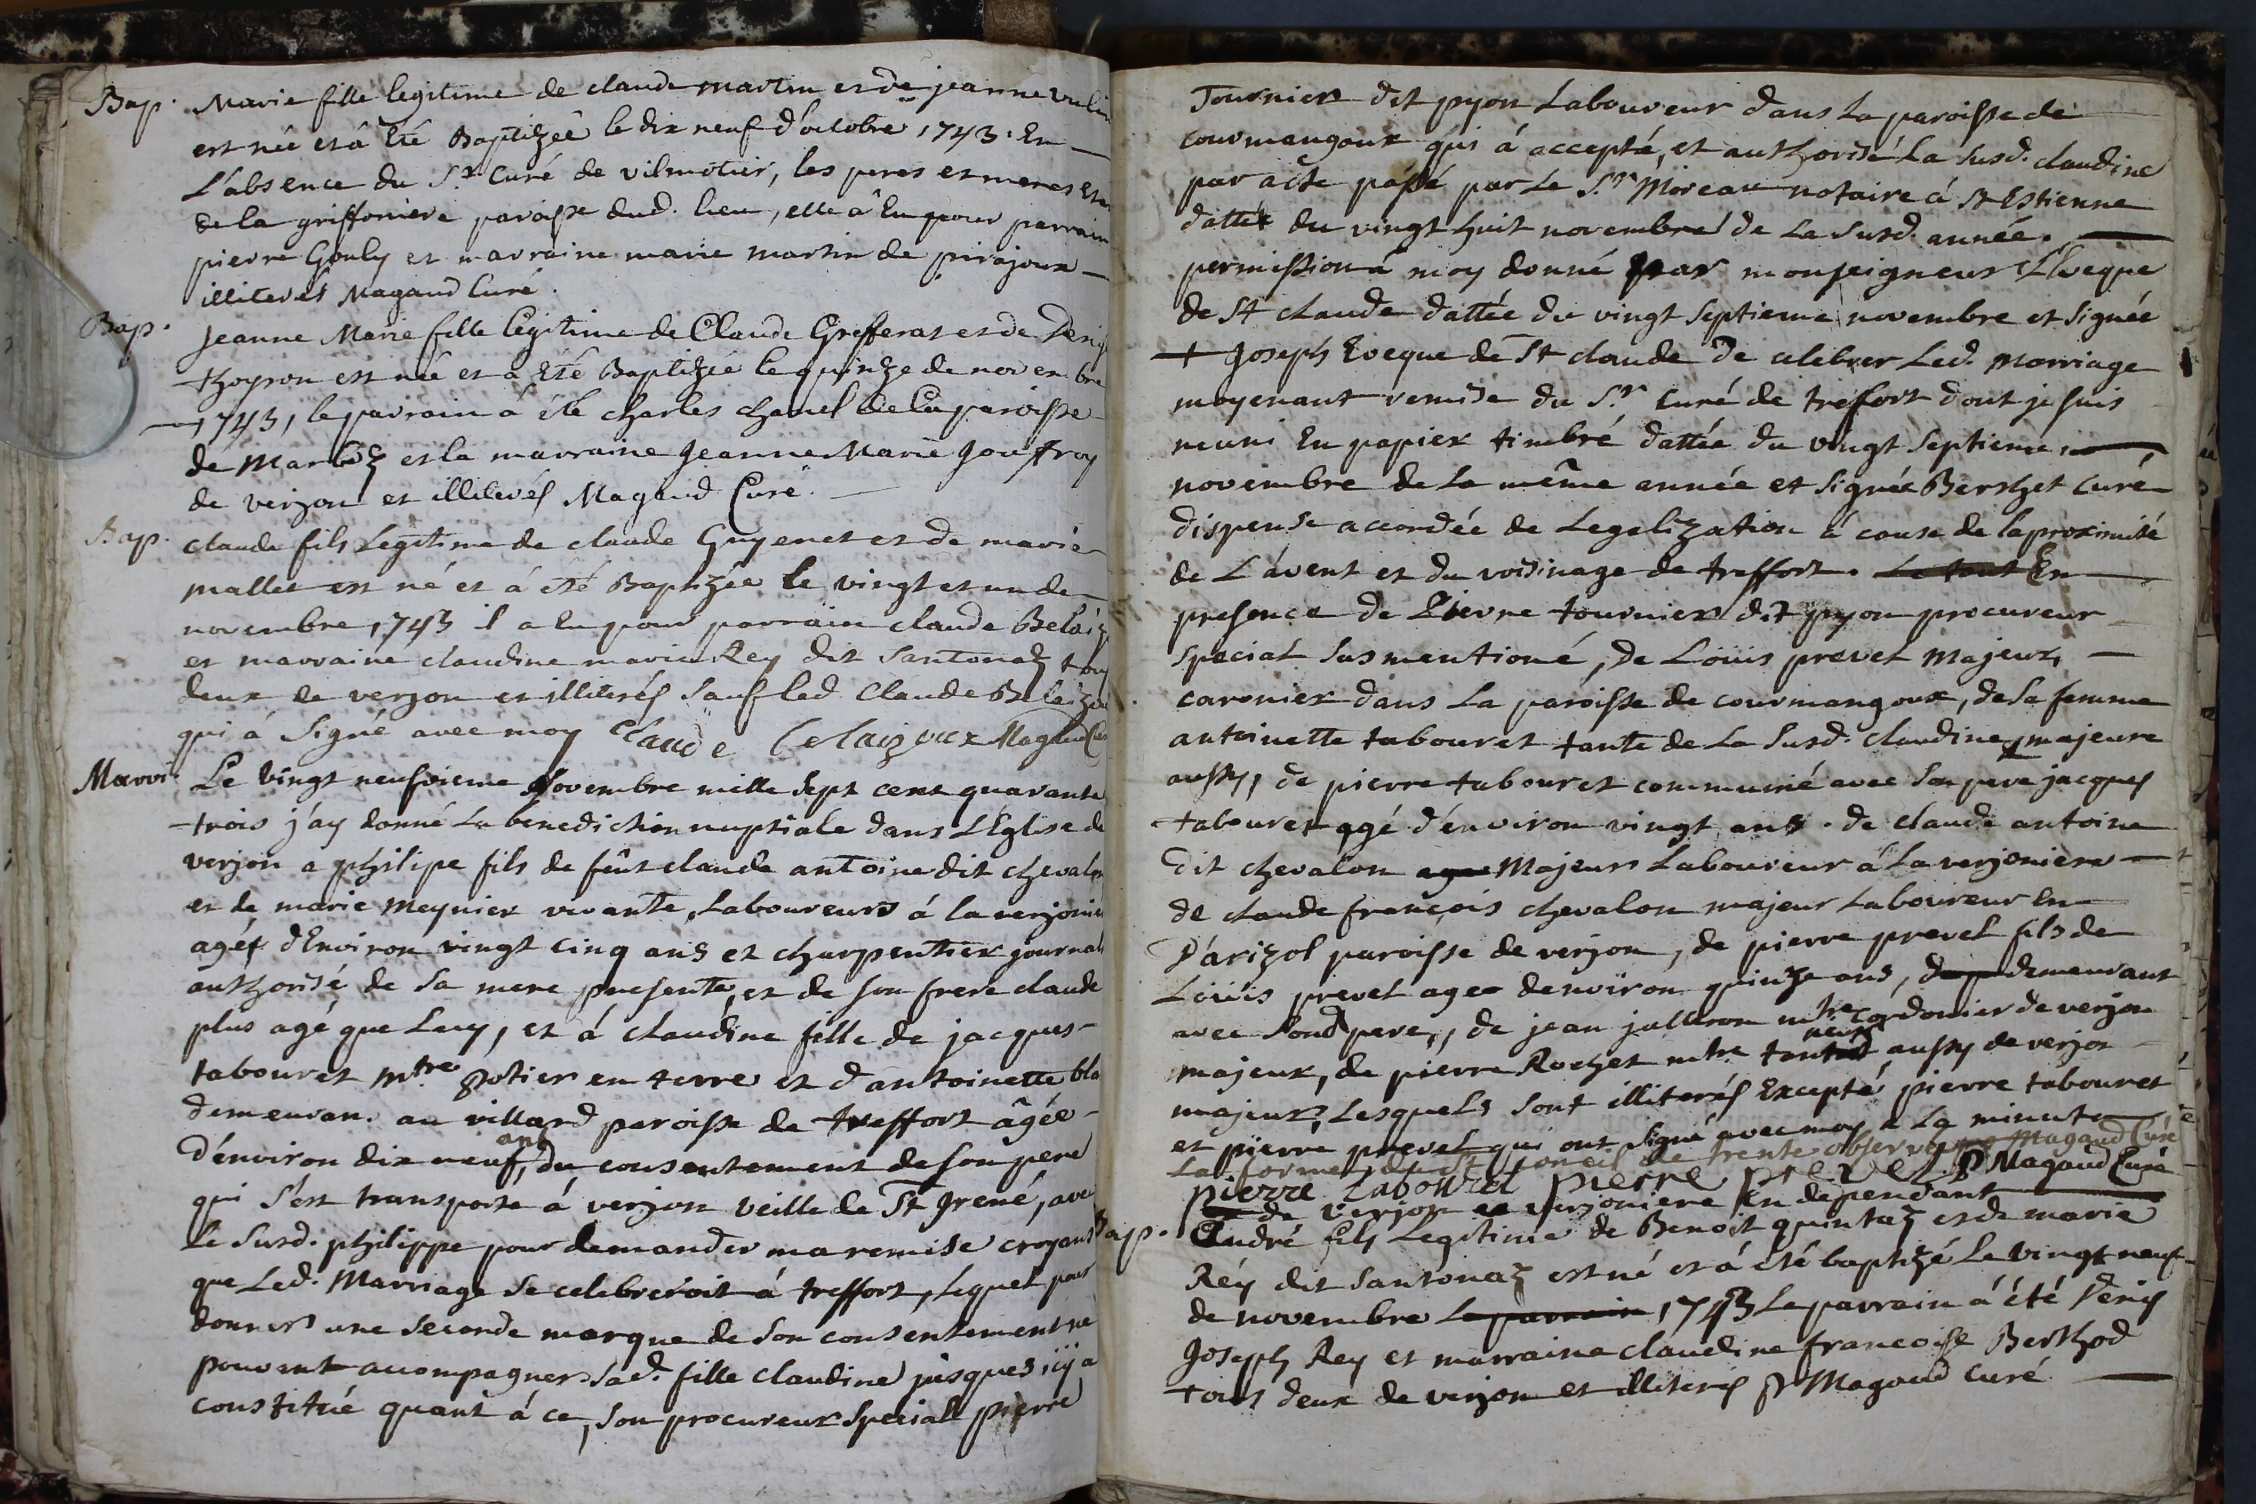 Bap. Marie fille legitime de claude martin et de jeanne vulin
est née et â Eté Baptizée le dix neuf d'octobre 1743. En
L'absence du Sr. Curé de vilmotier, les peres et meres et
de la griffoniere paroisse dud. lieu, elle â Eu pour parrain
pierre Gouly et marraine marie martin de pirajoux
illiterés Magaud Curé.
Bap. Jeanne Marie fille legitime de Claude Grifferat et de Denise
thoyron est née et a Eté Baptizée le quinze de novembre
1743, le parrain á été charles chanel de la paroisse
de Marboz et la marraine Jeanne Marie Jouffroy
de verjon et illiterés Magaud Curé.
Bap. claude fils Legitime de claude Guyenet et de marie
mallet est né et á été Baptizée le vingt et un de
novembre 1743 il a Eu pour parrain claude Belaiz
et marraine claudine marie Rey dit Santonaz tous
deux de verjon et illiterés sauf led Claude Belaizoux
qui á Signé avec moy Claude belaizoux Magaud Curé
Marri. Le Vingt neufvieme Novembre mille Sept cent quarante
trois j'ay donné La benediction nuptiale dans L'Eglise de
verjon a philipe fils de feût claude antoine dit chevalon
et de marie Meynier vivante, Laboureurs á la verjoniere
agés d'Environ vingt cinq ans et charpentier journal
authorisé de Sa mere presente, et de son frere claude
plus agé que Luy, et á claudine fille de jacques
tabouret mtre potier en terre et d'antoinette bla
demeuran. au villard paroisse de treffort âgée
d'énviron dix neuf ans, du consentement de son pere
qui s'est transporte á verjon veille de St Irené, avec
le Susd. philippe pour demander ma remise croyant
que Led. Marriage Se celebreroit á treffort, Lequel pour
donner une Seconde marque de Son consentement ne
pouvant accompagner Sad. fille claudine jusques icÿ a
constitué quant á ce, Son procureur Special pierre
Tournier dit pyon Laboureur dans La paroisse de
courmangoux qui á accepté, et authorisé La Susd. claudine
par acte passé par Le Sr. Moreau notaire á St Estienne
datté du vingt huit novembre de La Susd. année.
permission á moy donné par monseigneur L'Eveque
de St claude dattée du vingt Septieme novembre et Signée
+ Joseph Eveque de St claude de celebrer Led. Marriage
moyenant remise du Sr. Curé de treffort dont je suis
muni En papier timbré dattée du vingt Septieme
novembre de La même année et Signée Berthet Curé
dispense accordée de Legalization á cause de la proximité
de L'ávent et du voisinage de treffort. Le tout En
presence de Pierre tournier dit pyon procureur
special susmentioné, de Loüis prevel Majeur,
caronier dans La paroisse de courmangoux, de Sa femme
antoinette tabouret tante de La Susd. claudine, majeure
aussy, de pierre tabouret communié avec Son pere jacques
tabouret agé d'énviron vingt ans. de claude antoine
dit chevalon age Majeur Laboureur á La verjoniere
de claude françois chevalon majeur Laboureur En
D'arizol paroisse de verjon, de pierre prevel fils de
Loüis prevel agee denviron quinze ans, demeurant
avec Sond pere, de jean jullieron mtre cordonier de verjon
majeur, de pierre Rochet mtre tanneur aussy de verjon
majeur, Lesquels Sont illiterés Excepté pierre tabouret
et pierre prevel qui ont signé avec moy a La minute
La forme du St Concile de trente observée Magaud Curé
pierre Tabouret pierre prevel P Magaud Curé
de verjon verjoniere En dépendant
Bap. André fils Legitime de Benoit quintaz et de marie
Réy dit Santonaz est né et á été baptizé Le Vingt neuf
de novembre Le parrain 1743 Le parrain á été Denis
Joseph Rey et marraine claudine francoise Berthod
tous deux de verjon et illiterés P Magaud Curé